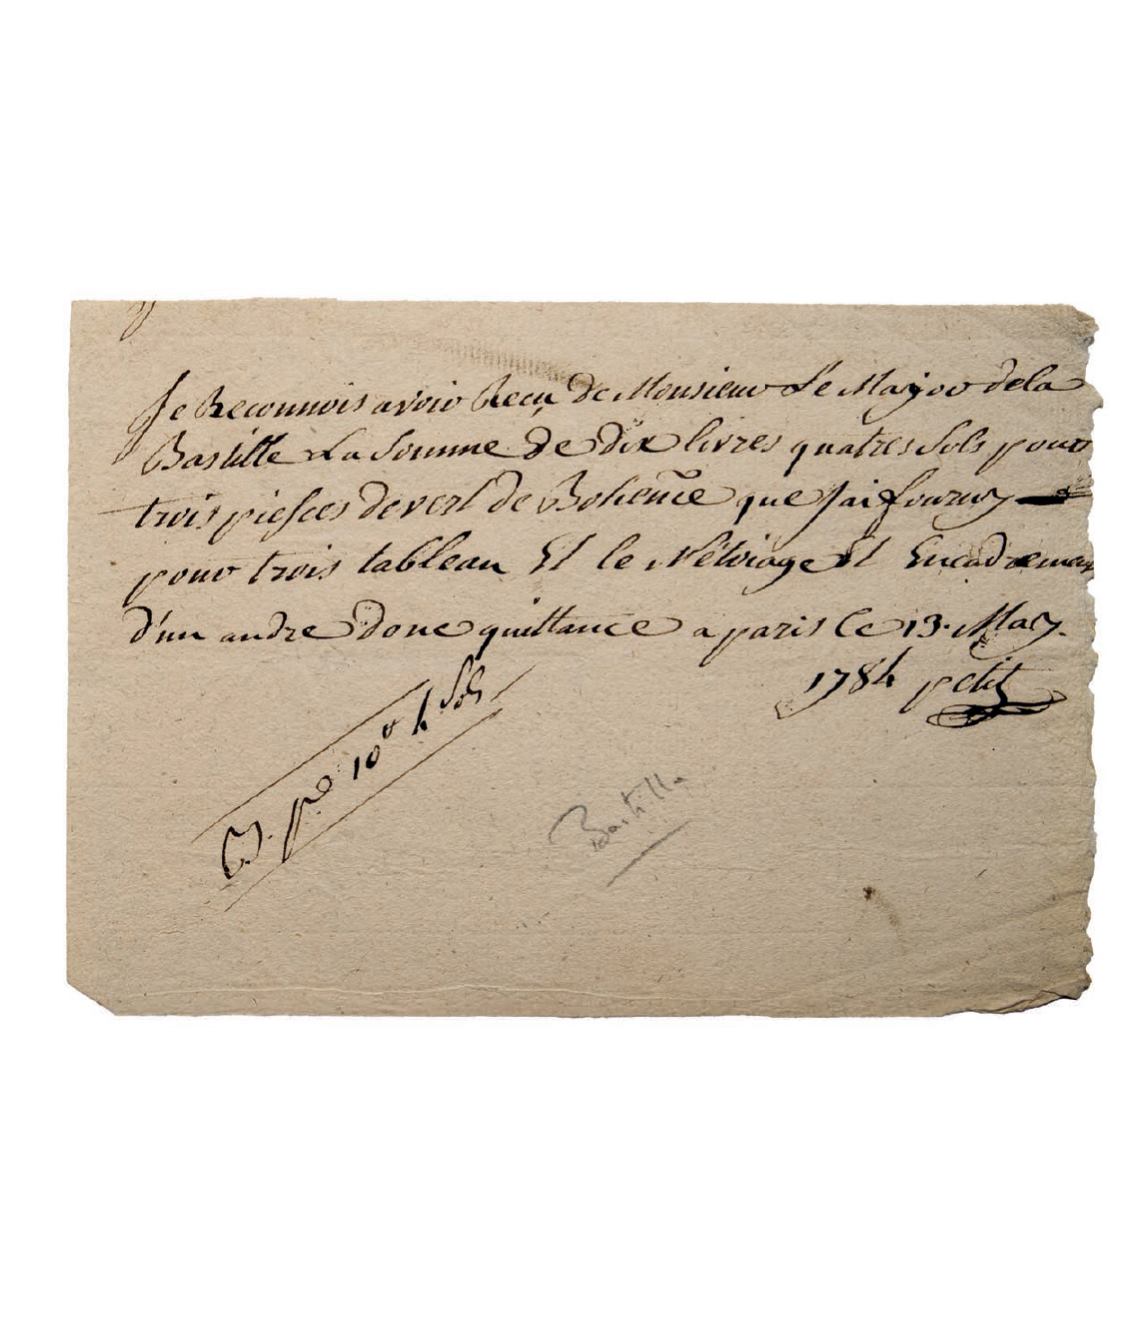 Je Reconnois avoir Recu de Monsieur Le Mayor dela
Bastille La Somme de dix livres quatres Sols pour
trois piesces de vert de Boheme que Jai fourny
pour trois tableau Et le Netoiage Et Encadremen
d'un audre Donc quittance a paris Ce 13. May
1784 petit
B. pr 10# 4 Sols
Bastille